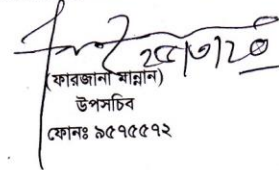 ২৫/৩/২০
(ফারজানা মান্নান)
উপসচিব
ফোনঃ ৯৫৭৫৫৭২